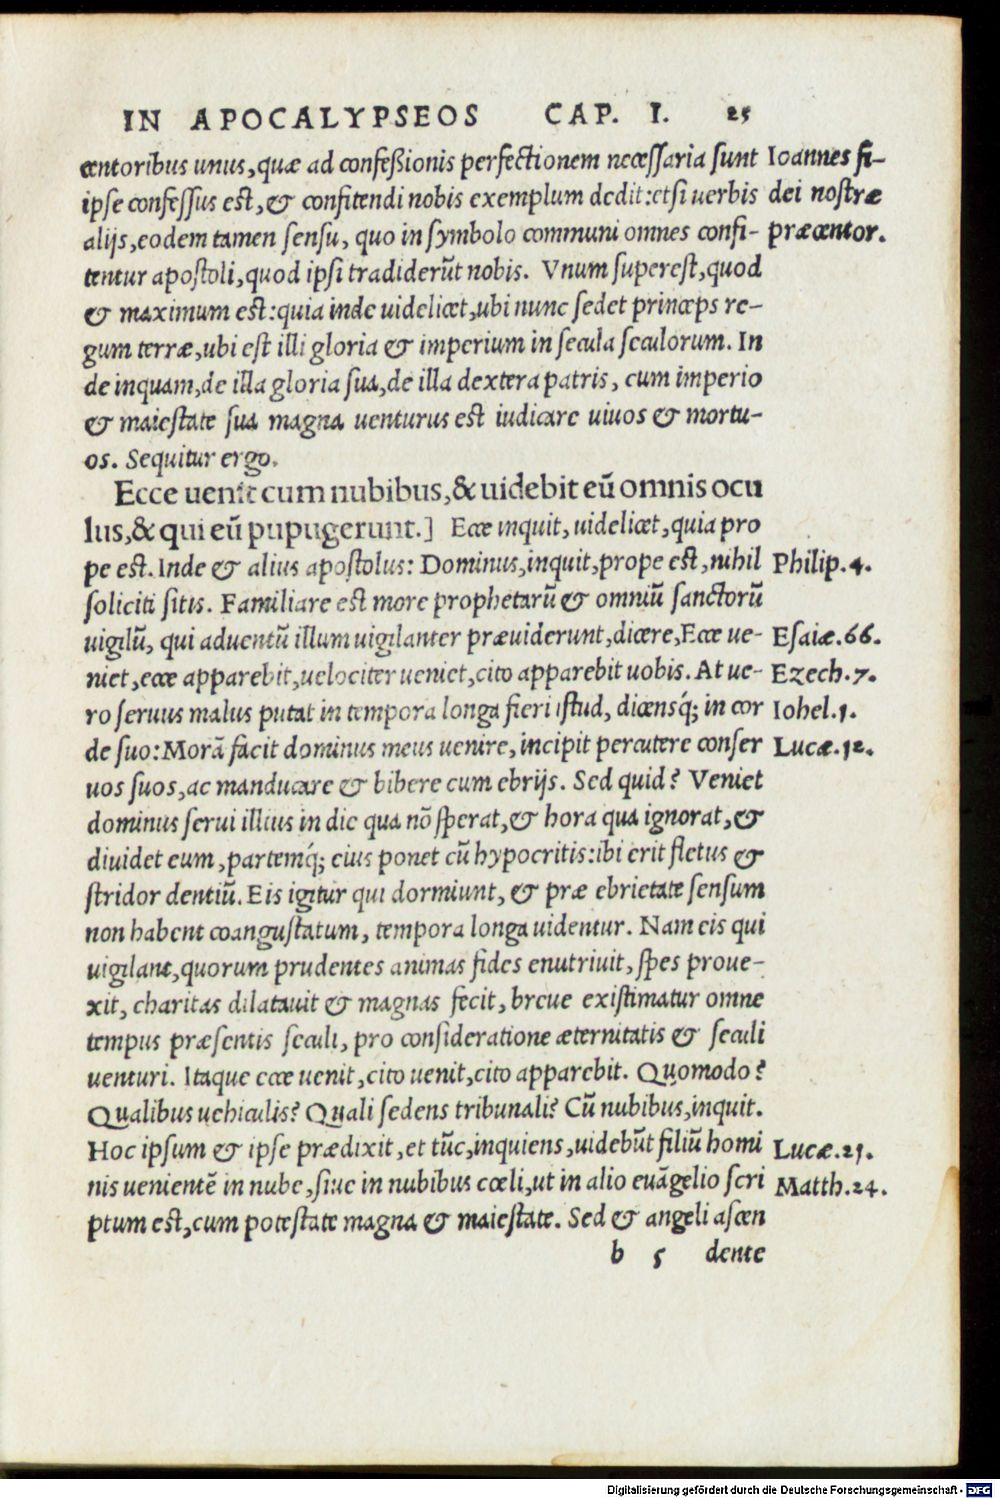 IN APOCALYPSEOS CAP. I. 25
centoribus unus, quæ ad confeßionis perfectionem necessaria sunt
ipse confessus est, & confitendi nobis exemplum dedit: etsi uerbis
alijs, eodem tamen sensu, quo in symbolo communi omnes confi-
tentur apostoli, quod ipsi tradiderũt nobis. Vnum superest, quod
& maximum est: quia inde uidelicet, ubi nunc sedet princeps re-
gum terræ, ubi est illi gloria & imperium in secula seculorum. In
de inquam, de illa gloria sua, de illa dextera patris, cum imperio
& maiestate sua magna uenturus est iudicare uiuos & mortu-
os. Sequitur ergo.
Ecce uenit cum nubibus, & uidebit eũ omnis ocu
lus, & qui eũ pupugerunt.] Ecce inquit, uidelicet, quia pro
pe est. Inde & alius apostolus: Dominus, inquit, prope est, nihil
soliciti sitis. Familiare est more prophetarũ & omniũ sanctorũ
uigilũ, qui aduentũ illum uigilanter præuiderunt, dicere, Ecce ue-
niet, ecce apparebit, uelociter ueniet, cito apparebit uobis. At ue-
ro seruus malus putat in tempora longa fieri istud, dicensq́; in cor
de suo: Morã facit dominus meus uenire, incipit percutere conser
uos suos, ac manducare & bibere cum ebrijs. Sed quid? Veniet
dominus serui illius in die qua nõ sperat, & hora qua ignorat, &
diuidet eum, partemq́; eius ponet cũ hypocritis: ibi erit fletus &
stridor dentiũ. Eis igitur qui dormiunt, & præ ebrietate sensum
non habent coangustatum, tempora longa uidentur. Nam eis qui
uigilant, quorum prudentes animas fides enutriuit, spes proue-
xit, charitas dilatauit & magnas fecit, breue existimatur omne
tempus præsentis seculi, pro consideratione æternitatis & seculi
uenturi. Itaque ecce uenit, cito uenit, cito apparebit. Quomodo?
Qualibus uehiculis? Quali sedens tribunali? Cũ nubibus, inquit.
Hoc ipsum & ipse prædixit, et tũc, inquiens, uidebũt filiũ homi
nis uenientẽ in nube, siue in nubibus cœli, ut in alio euãgelio scri
ptum est, cum potestate magna & maiestate. Sed & angeli ascen
b 5 dente
Ioannes fi-
dei nostræ
præcentor.
Philip. 4.
Esaiæ. 66.
Ezech. 7.
Iohel. 1.
Lucæ. 12.
Lucæ. 21.
Matth. 24.
Digitalisierung gefördert durch die Deutsche Forschungsgemeinschaft - DFG